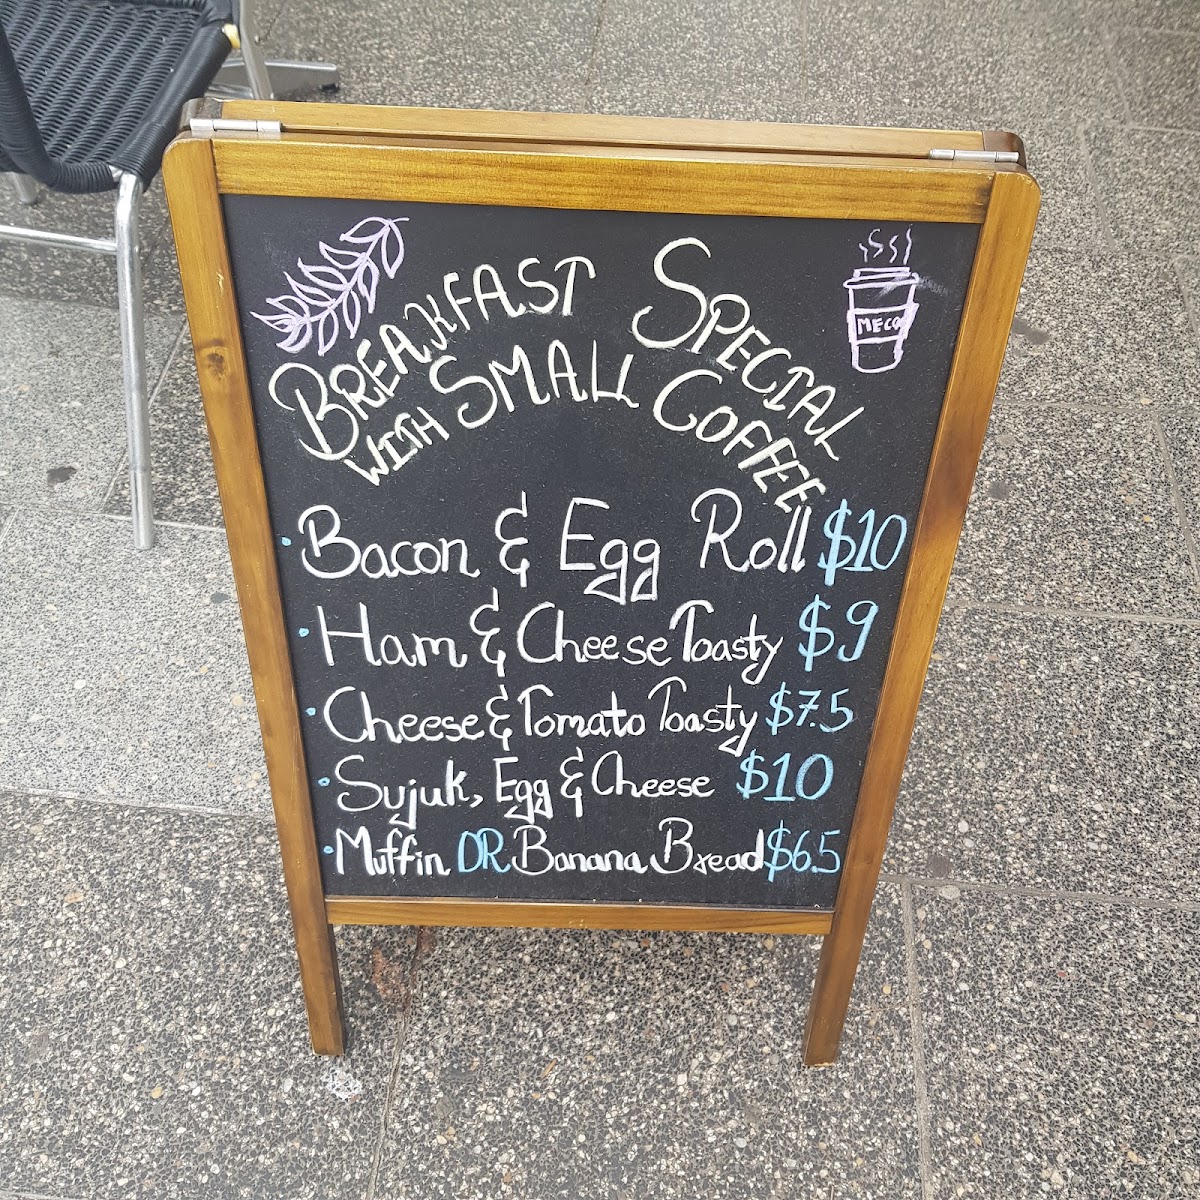 BREAKFAST SPECIAL
WITH SMALL COFFEE
MECO
Bacon & Egg Roll $10
Ham & Cheese Toasty $9
Cheese & Tomato Toasty $7.5
Sujuk, Egg & Cheese $10
Muffin OR Banana Bread $6.5